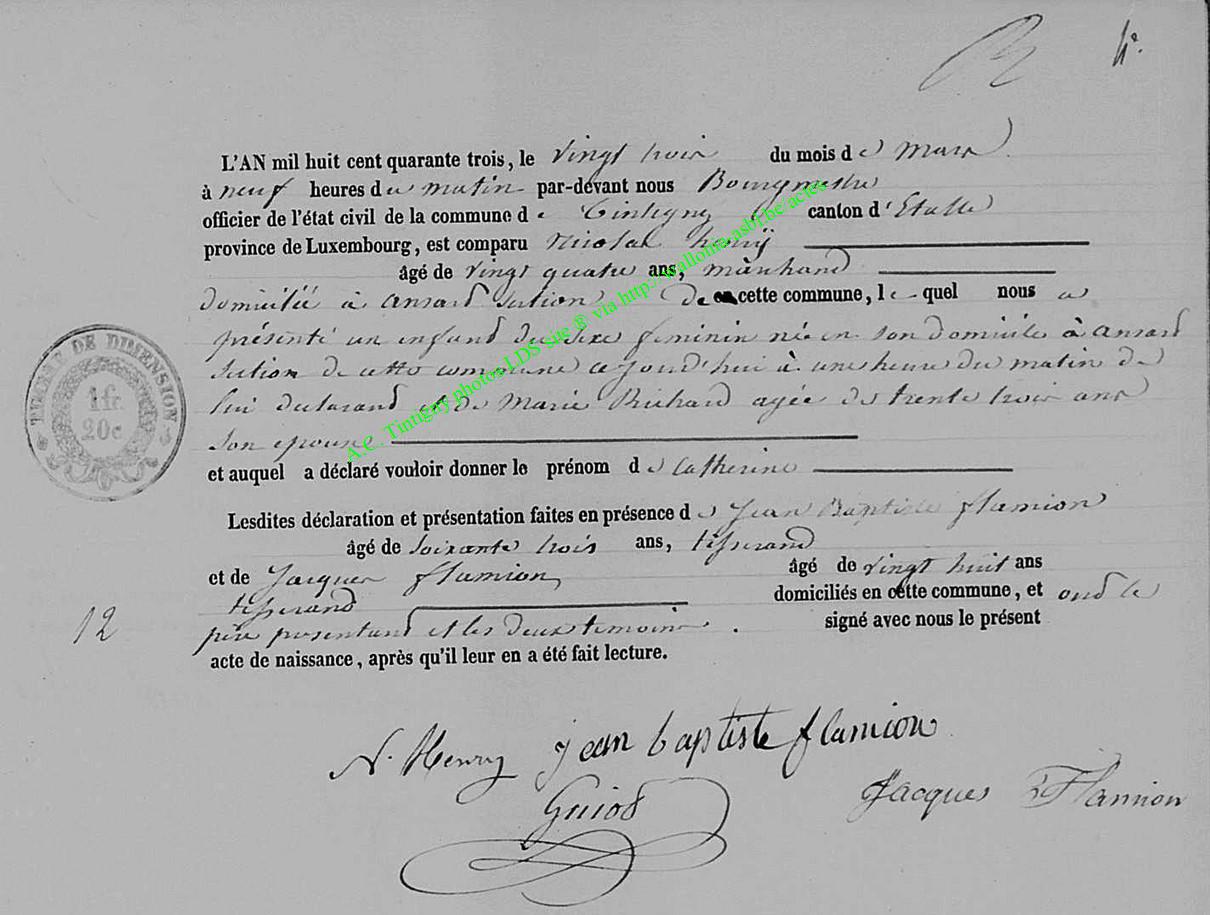 4e.
L'AN mil huit cent quarante trois, le vingt trois du mois de mars
à neuf heures du matin par-devant nous Bourgmestre
officier de l'état civil de la commune de Tintigny canton d'Etalle
province de Luxembourg, est comparu Nicolas henrÿ
âgé de vingt quatre ans, marchand
domicilié à ansart section de cette commune, lequel nous a
présenté un enfand du sexe feminin née en son domicile à ansard
section de cette commune cejourd'hui à une heure du matin de
lui déclarand et de Marie Richard agée de trente trois ans
son epouse
et auquel a déclaré vouloir donner le prénom de Catherine
Lesdites déclaration et présentation faites en présence de Jean Baptiste flamion
âgé de soixante trois ans, tisserand
et de Jacques flamion âgé de vingt huit ans
tisserand domiciliés en cette commune, et ond le
père présentand et les deux témoins. signé avec nous le présent
acte de naissance, après qu'il leur en a été fait lecture.
12
N. Henry jean baptiste flamion
Guiot
Jacques Flamion
TIMBRE DE DIMENSION
1 fr
20c
A.C. Tintigny photos LDS sue ® via http://wallonia-asbl.be/actes